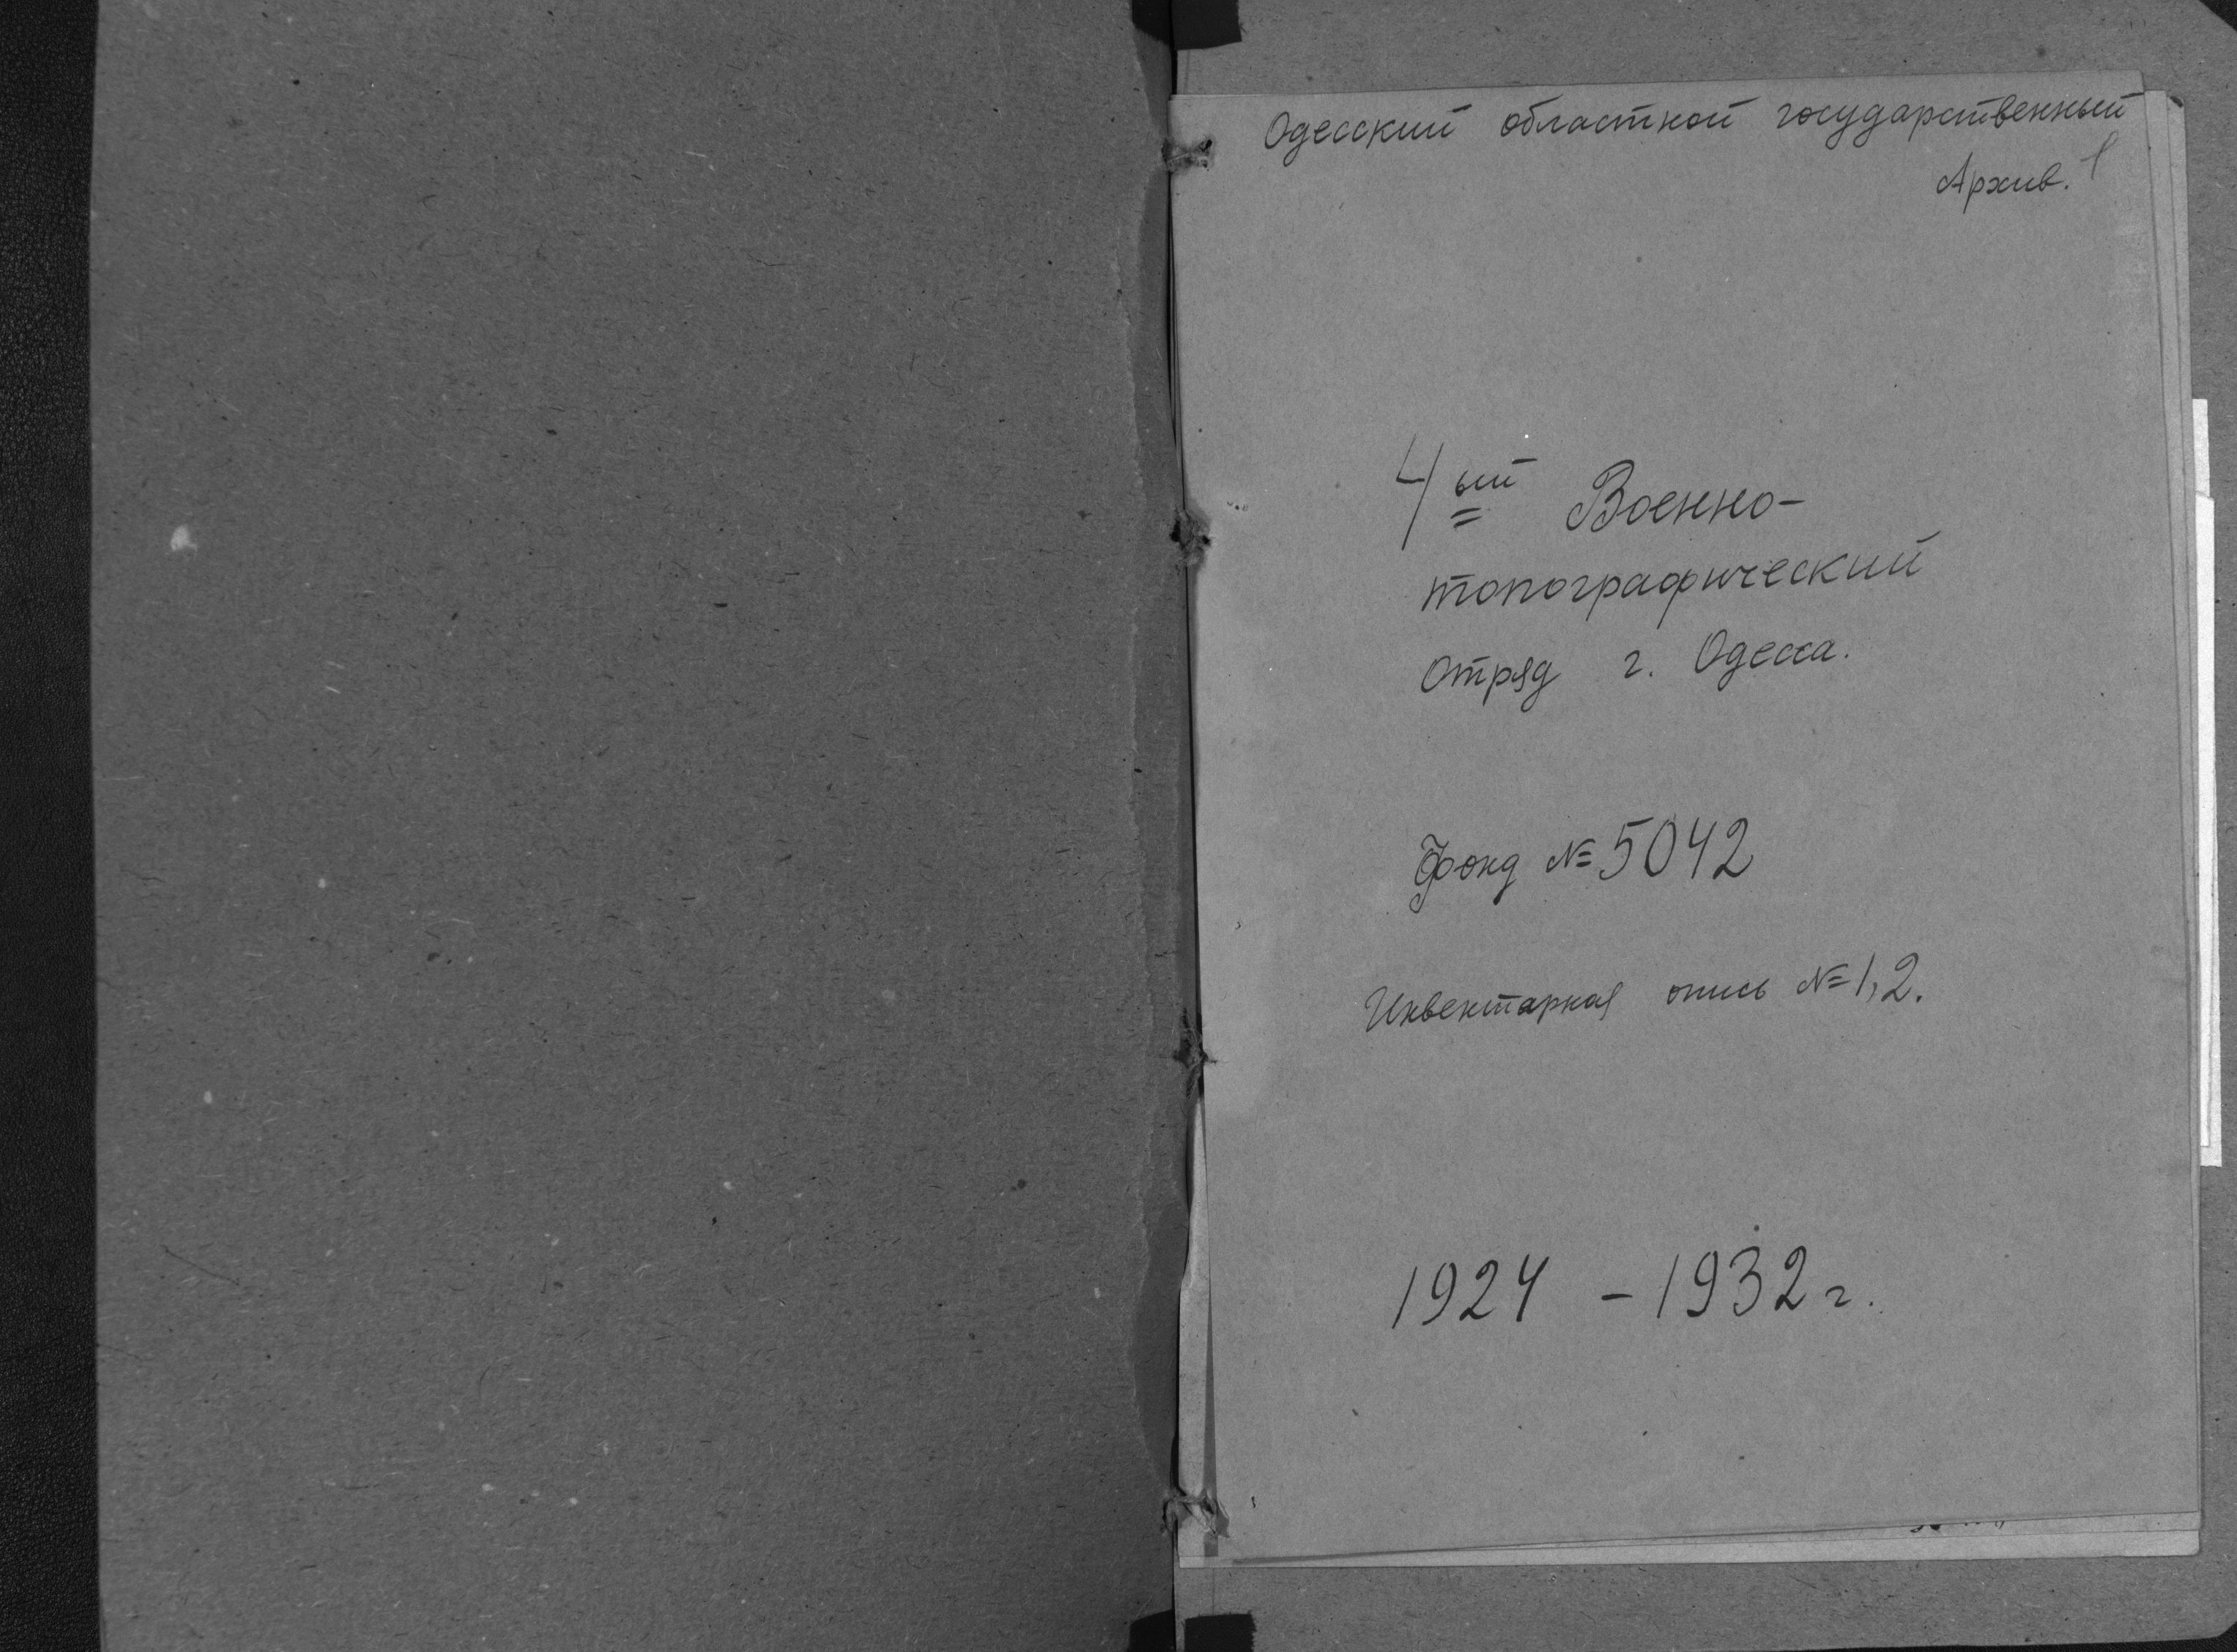 Одесский областной государственный
Архив. 1
4ый Военно-
топографический
отряд г. Одесса.
Фонд № 5042
Инвентарная опись № 1, 2.
1924 - 1932 г.